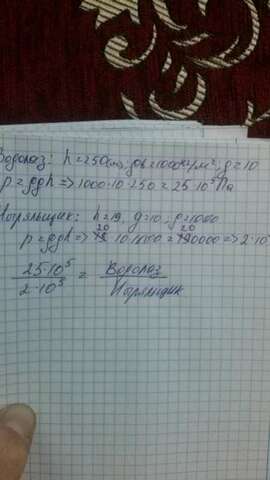 Водолаз: h=250м; ρв=1000кг/м³; g=10
p=ρgh => 1000·10·250 = 25·10⁵ Па
Ныряльщик: h=19, g=10; ρ=1000
20 20
p=ρgh => 19·10·1000 = 190000 => 2·10
25·10⁵ / 2·10⁵ = Водолаз / Ныряльщик